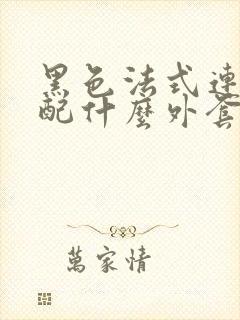 黑色法式連
配什麼外套
萬家情